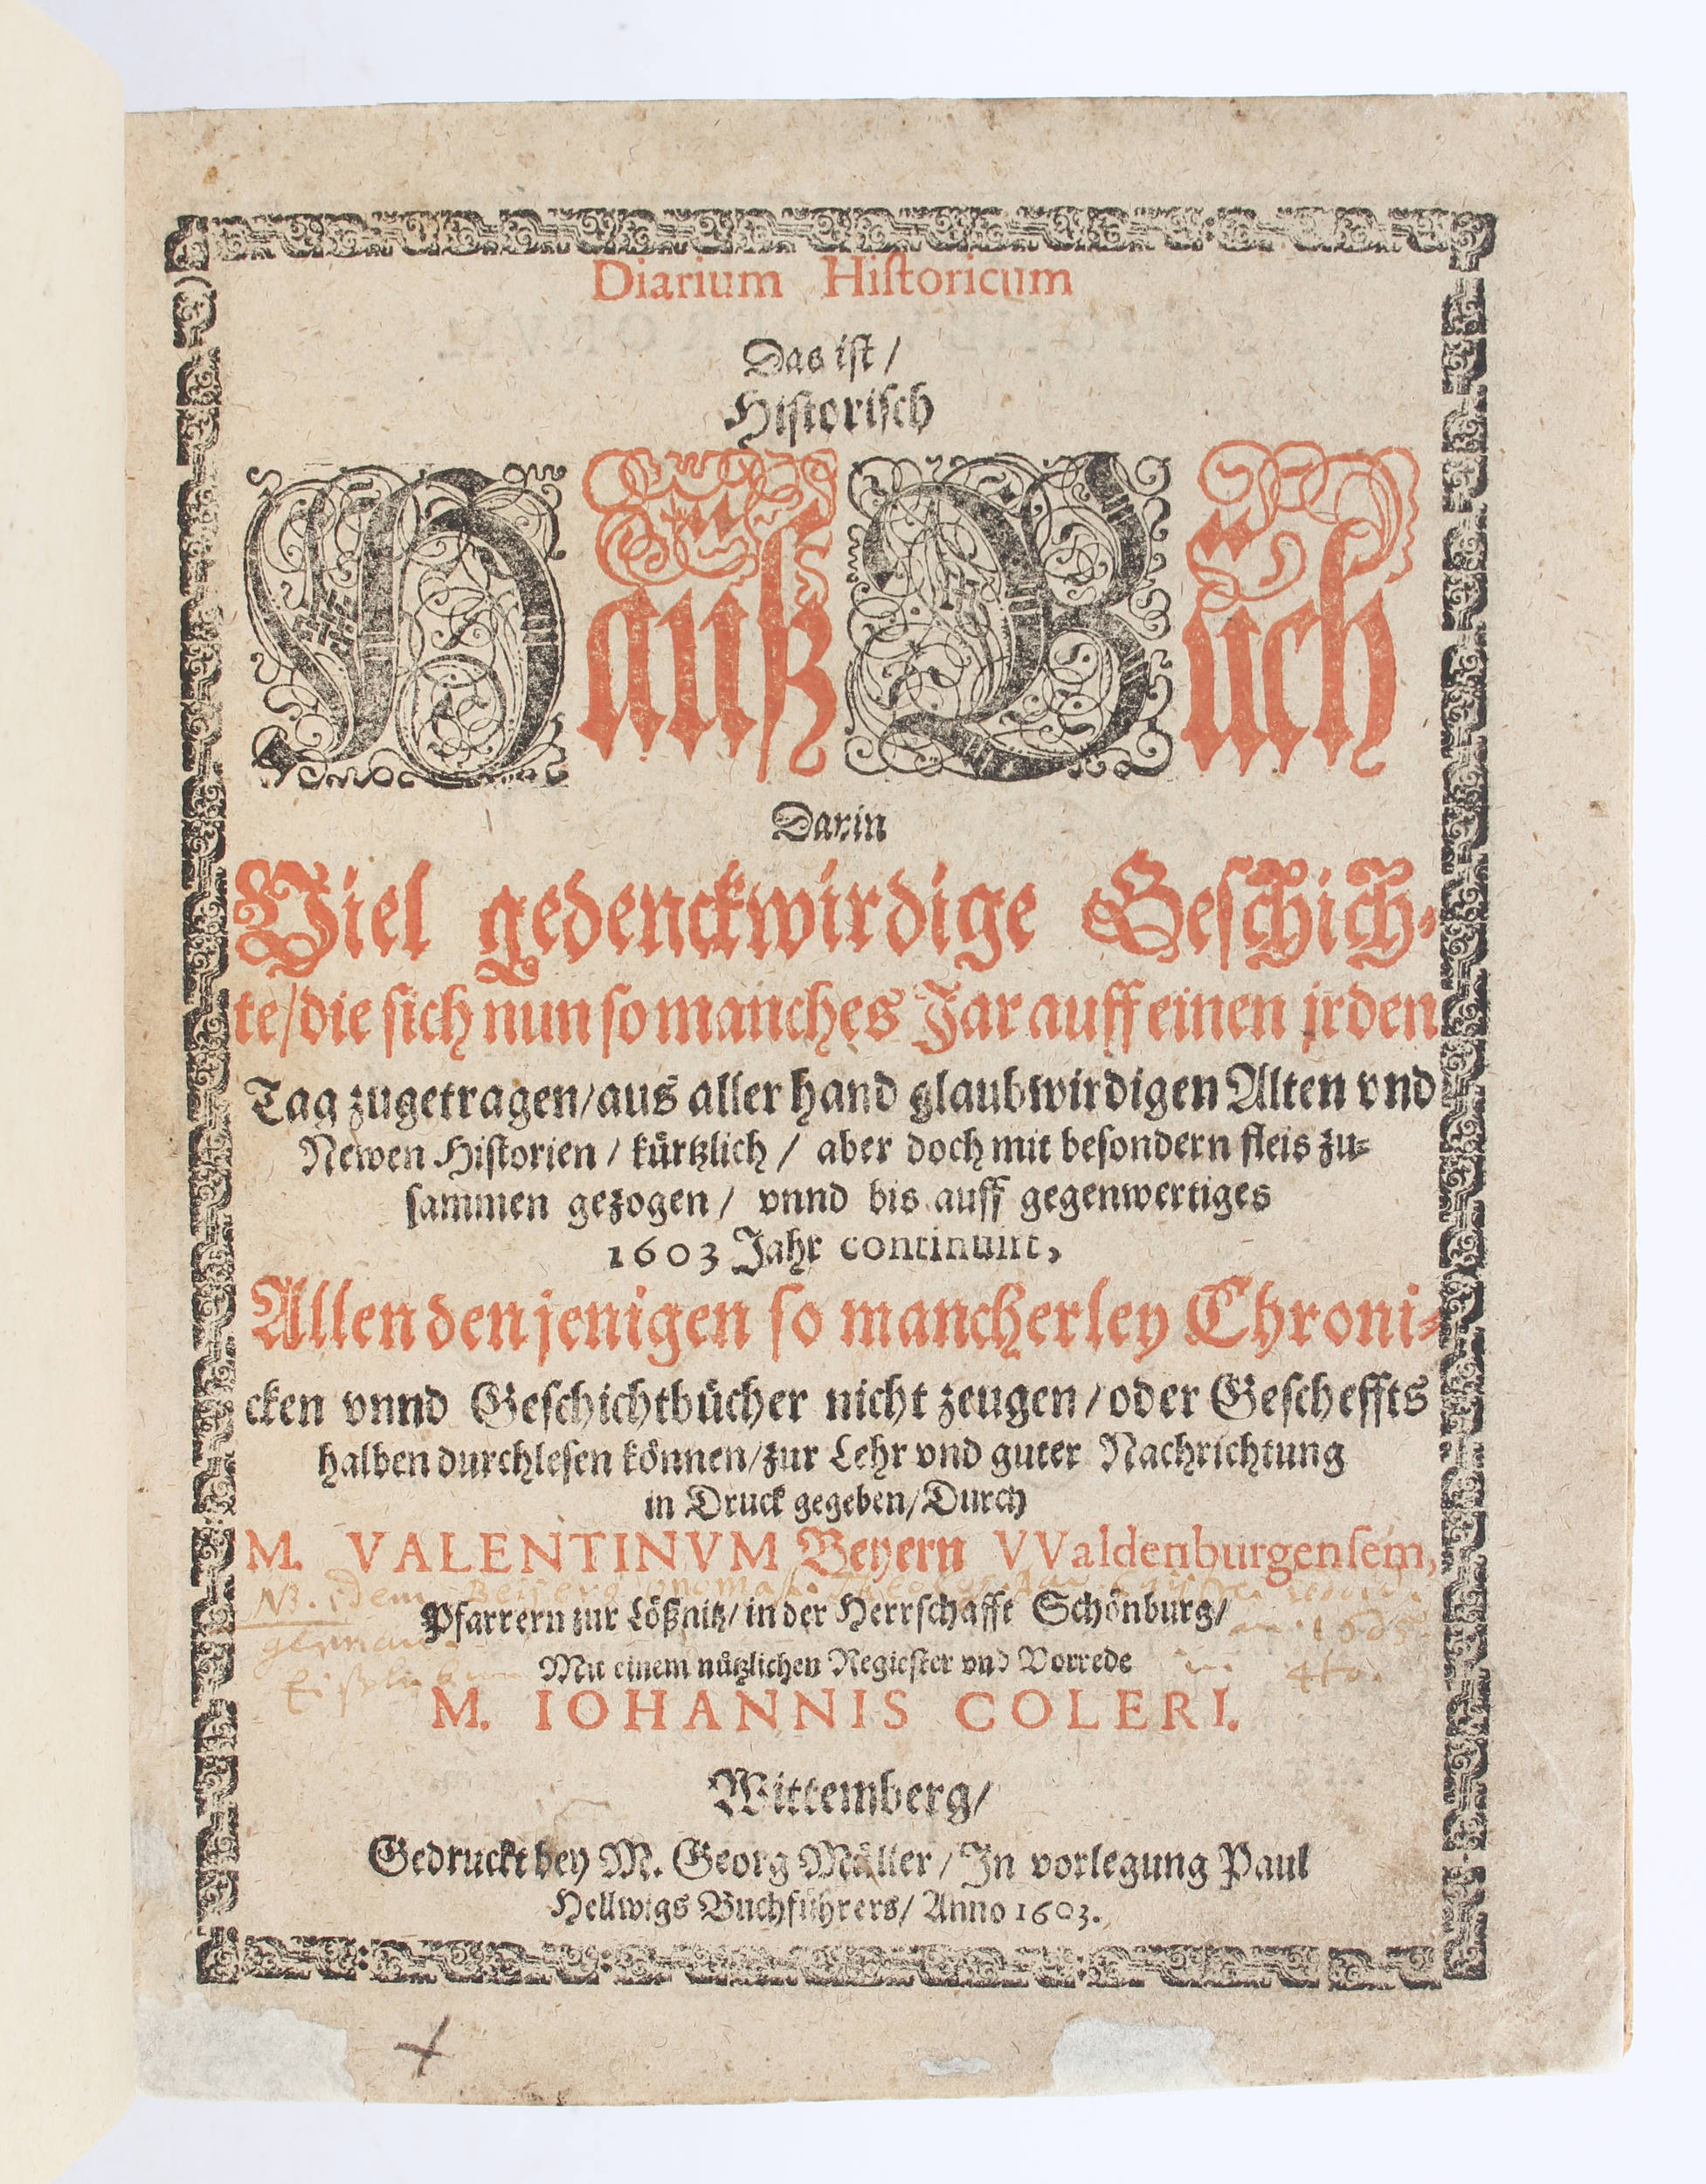 Diarium Historicum
Das ist /
Historisch
Hauß Buch
Darin
Viel gedenckwirdige Geschich-
te / die sich nun so manches Jar auff einen jrden
Tag zugetragen / aus aller hand glaubwirdigen Alten vnd
Newen Historien / kürtzlich / aber doch mit besondern fleis zu-
sammen gezogen / vnnd bis auff gegenwertiges
1603 Jahr continuirt,
Allen denjenigen so mancherley Chroni-
cken vnnd Geschichtbücher nicht zeugen / oder Gescheffts
halben durchlesen können / zur Lehr vnd guter Nachrichtung
in Druck gegeben / Durch
M. VALENTINVM Beyern VValdenburgensem,
NB. idem
Pfarrern zur Lößnitz / in der Herrschafft Schönburg /
an. 1605
Mit einem nützlichen Regiester vnd Vorrede
in 4to.
M. IOHANNIS COLERI.
Wittemberg /
Gedruckt bey M. Georg Müller / In vorlegung Paul
Hellwigs Buchführers / Anno 1603.